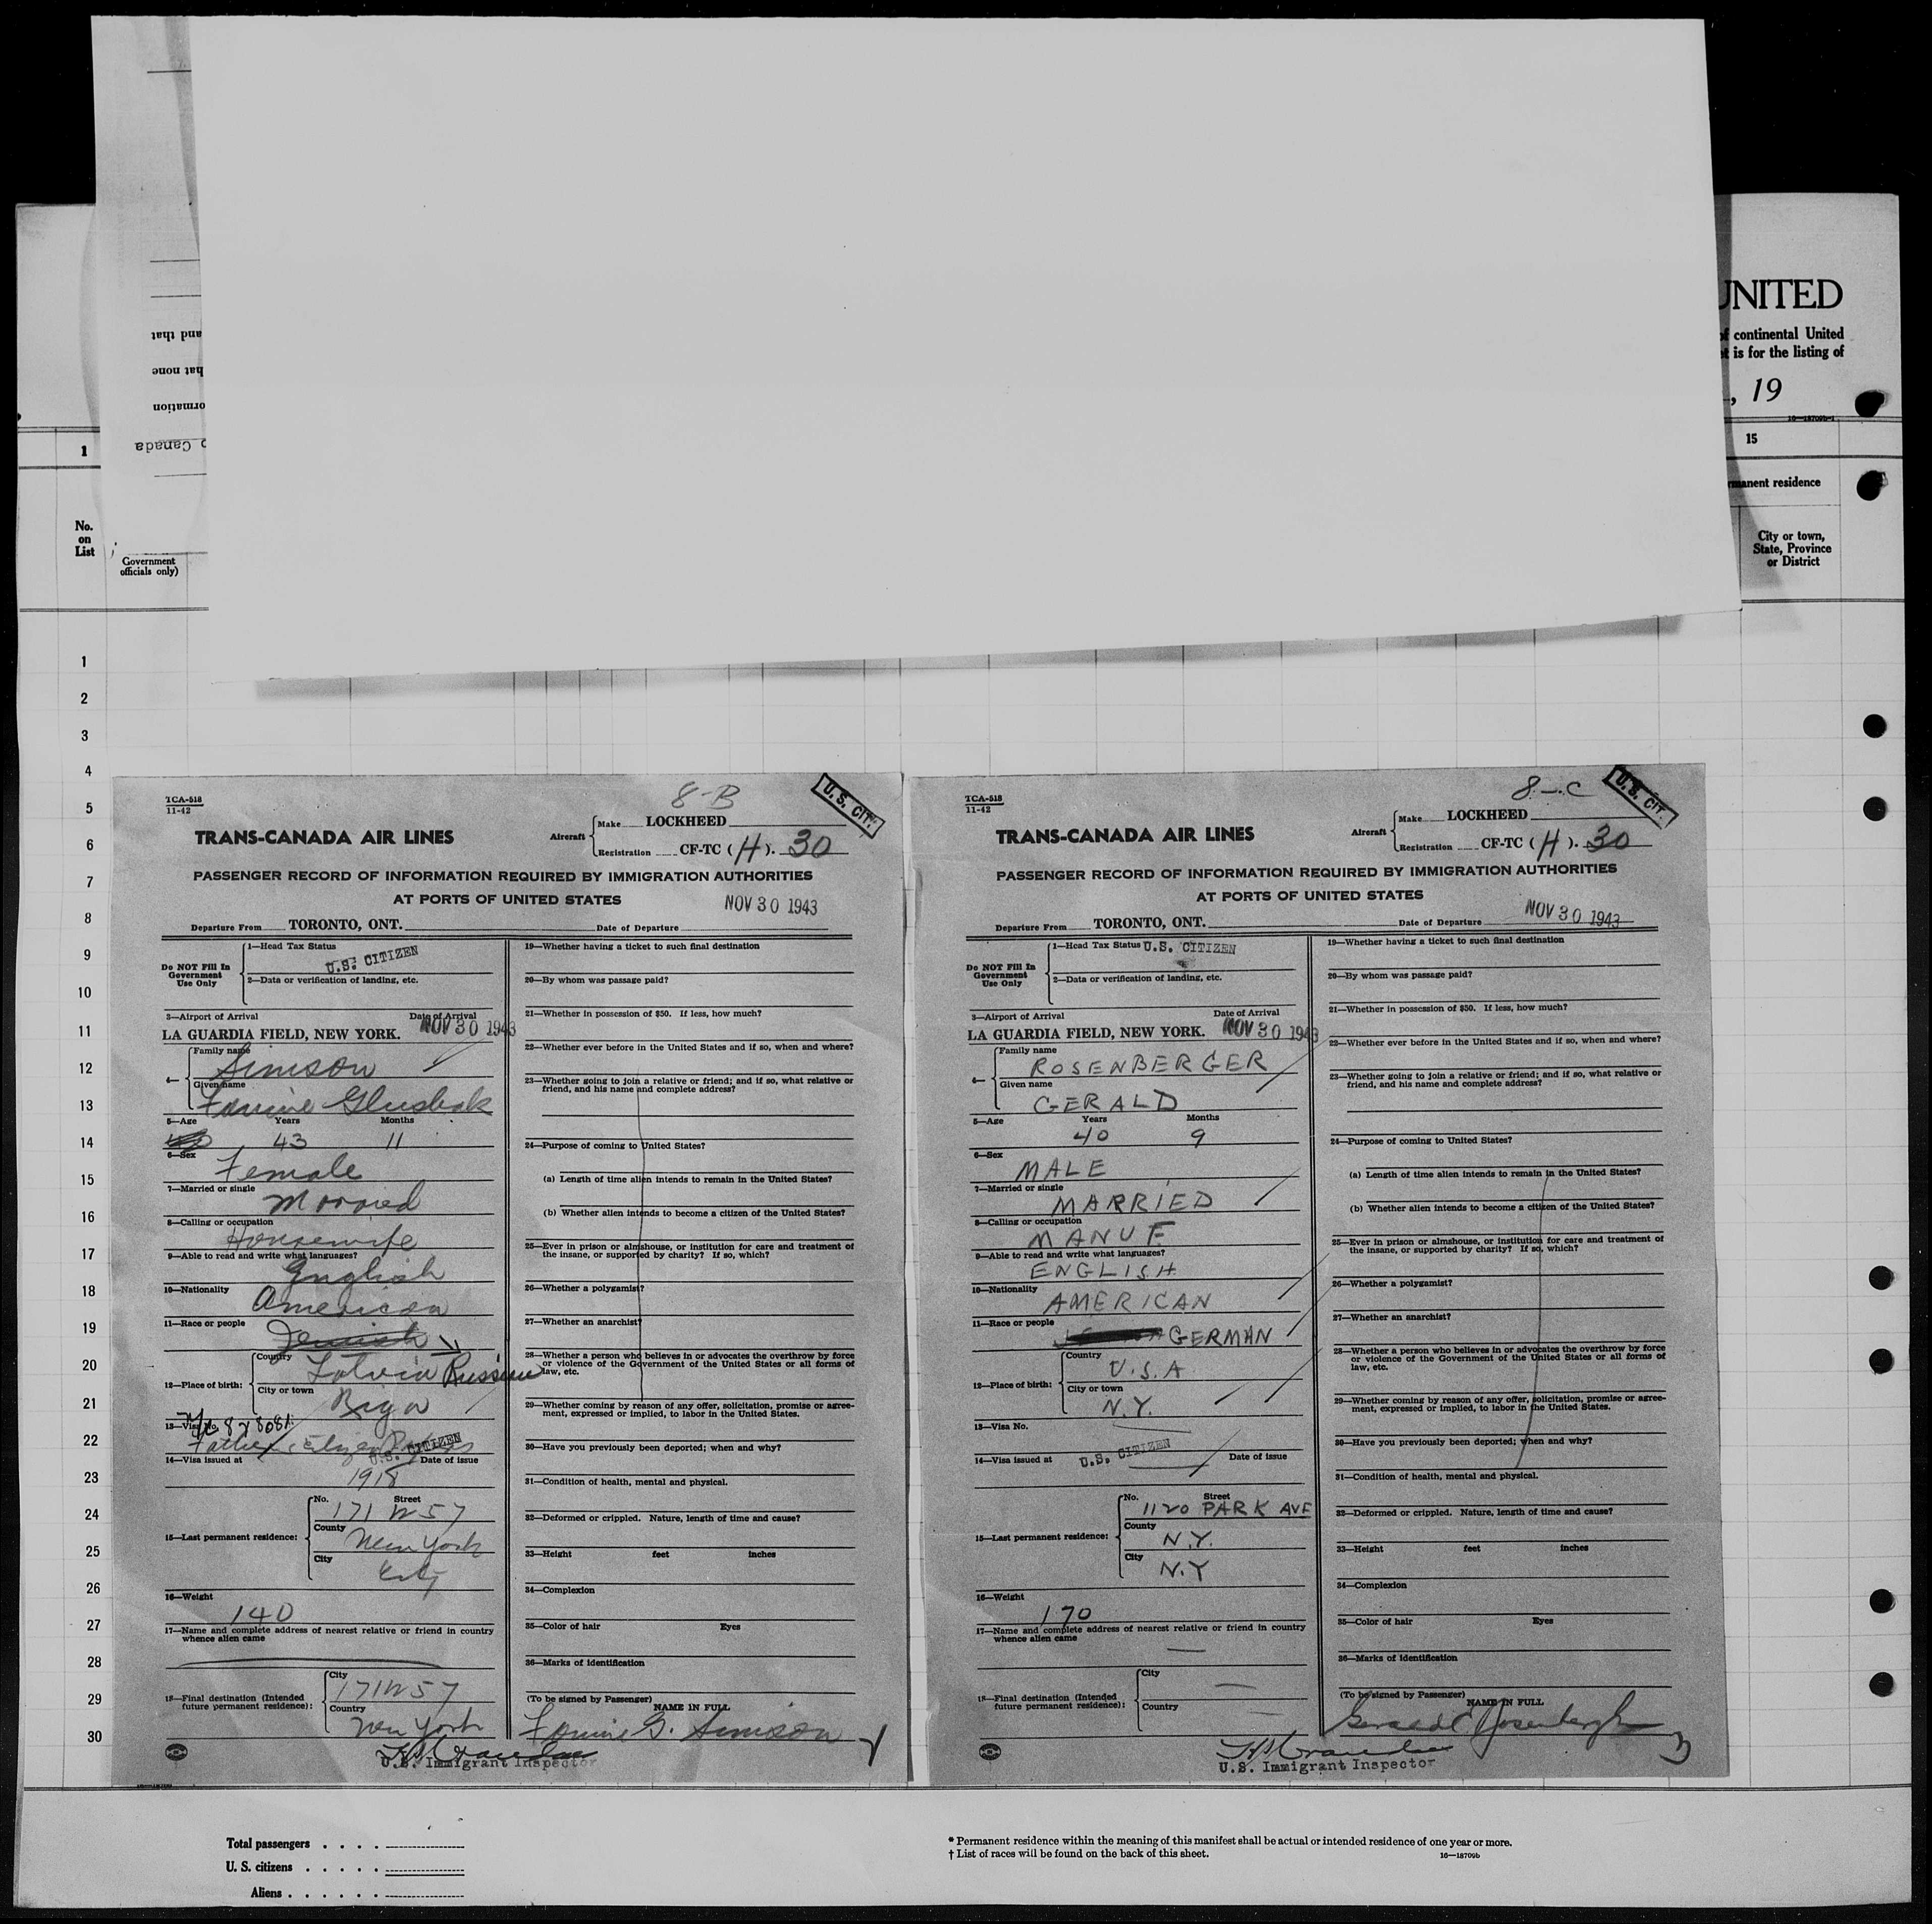 UNITED
of continental United
is for the listing of
, 19
16—18709b-1
and that
hat none
ormation
o Canada
1
15
manent residence
No.
on
List
Government
officials only)
City or town,
State, Province
or District
1
2
3
4
5
6
7
8
9
10
11
12
13
14
15
16
17
18
19
20
21
22
23
24
25
26
27
28
29
30
TCA-518
11-42
8-B
U.S. CIT.
TRANS-CANADA AIR LINES
Aircraft
Make LOCKHEED
Registration CF-TC (H). 30
PASSENGER RECORD OF INFORMATION REQUIRED BY IMMIGRATION AUTHORITIES
AT PORTS OF UNITED STATES
NOV 30 1943
Departure From TORONTO, ONT. Date of Departure
Do NOT Fill In
Government
Use Only
1—Head Tax Status
U.S. CITIZEN
2—Data or verification of landing, etc.
3—Airport of Arrival Date of Arrival
LA GUARDIA FIELD, NEW YORK. NOV 30 1943
4—
Family name
Simson
Given name
Fannie
5—Age Years Months
43 11
6—Sex
Female
7—Married or single
Married
8—Calling or occupation
Housewife
9—Able to read and write what languages?
English
10—Nationality
American
11—Race or people
Jewish
12—Place of birth:
Country
Latvia Russian
City or town
Riga
13—Visa No.
Father Citizen
U.S. CITIZEN
14—Visa issued at Date of issue
1918
15—Last permanent residence:
No. Street
171 W 57
County
New York
City
City
16—Weight
140
17—Name and complete address of nearest relative or friend in country
whence alien came
18—Final destination (Intended
future permanent residence):
City
171 W 57
Country
New York
19—Whether having a ticket to such final destination
20—By whom was passage paid?
21—Whether in possession of $50. If less, how much?
22—Whether ever before in the United States and if so, when and where?
23—Whether going to join a relative or friend; and if so, what relative or
friend, and his name and complete address?
24—Purpose of coming to United States?
(a) Length of time alien intends to remain in the United States?
(b) Whether alien intends to become a citizen of the United States?
25—Ever in prison or almshouse, or institution for care and treatment of
the insane, or supported by charity? If so, which?
26—Whether a polygamist?
27—Whether an anarchist?
28—Whether a person who believes in or advocates the overthrow by force
or violence of the Government of the United States or all forms of
law, etc.
29—Whether coming by reason of any offer, solicitation, promise or agree-
ment, expressed or implied, to labor in the United States.
30—Have you previously been deported; when and why?
31—Condition of health, mental and physical.
32—Deformed or crippled. Nature, length of time and cause?
33—Height feet inches
34—Complexion
35—Color of hair Eyes
36—Marks of identification
(To be signed by Passenger)
NAME IN FULL
Fannie G. Simson
U.S. Immigrant Inspector
TCA-518
11-42
8-C
U.S. CIT.
TRANS-CANADA AIR LINES
Aircraft
Make LOCKHEED
Registration CF-TC (H). 30
PASSENGER RECORD OF INFORMATION REQUIRED BY IMMIGRATION AUTHORITIES
AT PORTS OF UNITED STATES
NOV 30 1943
Departure From TORONTO, ONT. Date of Departure
Do NOT Fill In
Government
Use Only
1—Head Tax Status U.S. CITIZEN
2—Data or verification of landing, etc.
3—Airport of Arrival Date of Arrival
LA GUARDIA FIELD, NEW YORK. NOV 30 1943
4—
Family name
ROSENBERGER
Given name
GERALD
5—Age Years Months
40 9
6—Sex
MALE
7—Married or single
MARRIED
8—Calling or occupation
MANUF.
9—Able to read and write what languages?
ENGLISH
10—Nationality
AMERICAN
11—Race or people
GERMAN
12—Place of birth:
Country
U.S.A
City or town
N.Y.
13—Visa No.
14—Visa issued at U.S. CITIZEN Date of issue
15—Last permanent residence:
No. Street
1120 PARK AVE
County
N.Y.
City
N.Y
16—Weight
170
17—Name and complete address of nearest relative or friend in country
whence alien came
18—Final destination (Intended
future permanent residence):
City
Country
19—Whether having a ticket to such final destination
20—By whom was passage paid?
21—Whether in possession of $50. If less, how much?
22—Whether ever before in the United States and if so, when and where?
23—Whether going to join a relative or friend; and if so, what relative or
friend, and his name and complete address?
24—Purpose of coming to United States?
(a) Length of time alien intends to remain in the United States?
(b) Whether alien intends to become a citizen of the United States?
25—Ever in prison or almshouse, or institution for care and treatment of
the insane, or supported by charity? If so, which?
26—Whether a polygamist?
27—Whether an anarchist?
28—Whether a person who believes in or advocates the overthrow by force
or violence of the Government of the United States or all forms of
law, etc.
29—Whether coming by reason of any offer, solicitation, promise or agree-
ment, expressed or implied, to labor in the United States.
30—Have you previously been deported; when and why?
31—Condition of health, mental and physical.
32—Deformed or crippled. Nature, length of time and cause?
33—Height feet inches
34—Complexion
35—Color of hair Eyes
36—Marks of identification
(To be signed by Passenger)
NAME IN FULL
U.S. Immigrant Inspector
Total passengers
U. S. citizens
Aliens
* Permanent residence within the meaning of this manifest shall be actual or intended residence of one year or more.
† List of races will be found on the back of this sheet.
16—18709b